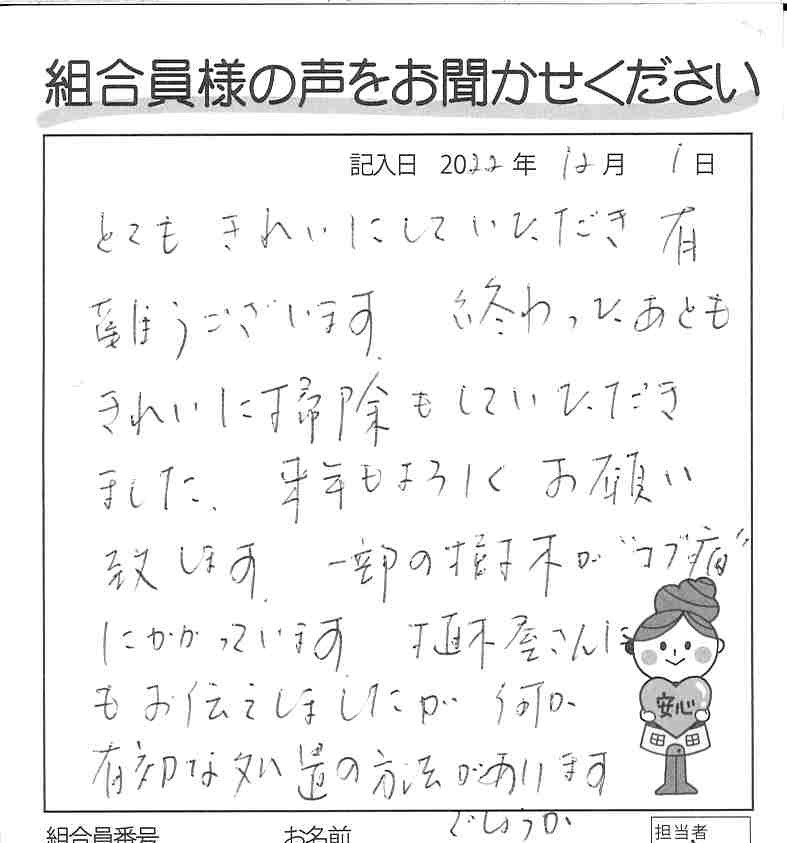 組合員様の声をお聞かせください
記入日 2022年 12月 1日
とてもきれいにしていただき 有
難うございます。 終わったあとも
きれいに掃除もしていただき
ました。 来年もよろしくお願い
致します。 一部の樹木が“コブ病”
にかかっています 植木屋さんに
もお伝えしましたが 何か
有効な処置の方法があります
でしょうか
安心
組合員番号 お名前 担当者